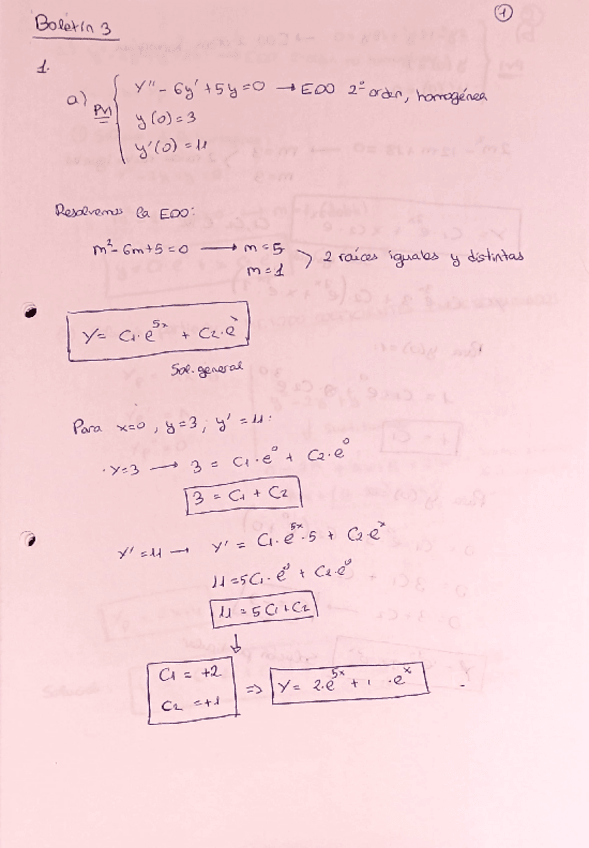 1
Boletín 3
1.
a) PVI { y'' - 6y' + 5y = 0 → EDO 2º orden, homogénea
y(0) = 3
y'(0) = 11
Resolvemos la EDO:
m² - 6m + 5 = 0 → m = 5
m = 1 > 2 raíces iguales y distintas
y = C1·e^5x + C2·e^x
Sol. general
Para x=0, y=3, y' = 11:
· y=3 → 3 = C1·e^0 + C2·e^0
3 = C1 + C2
y' = 11 → y' = C1·e^5x·5 + C2·e^x
11 = 5C1·e^0 + C2·e^0
11 = 5C1 + C2
↓
C1 = +2
C2 = +1
⇒ y = 2·e^5x + 1·e^x